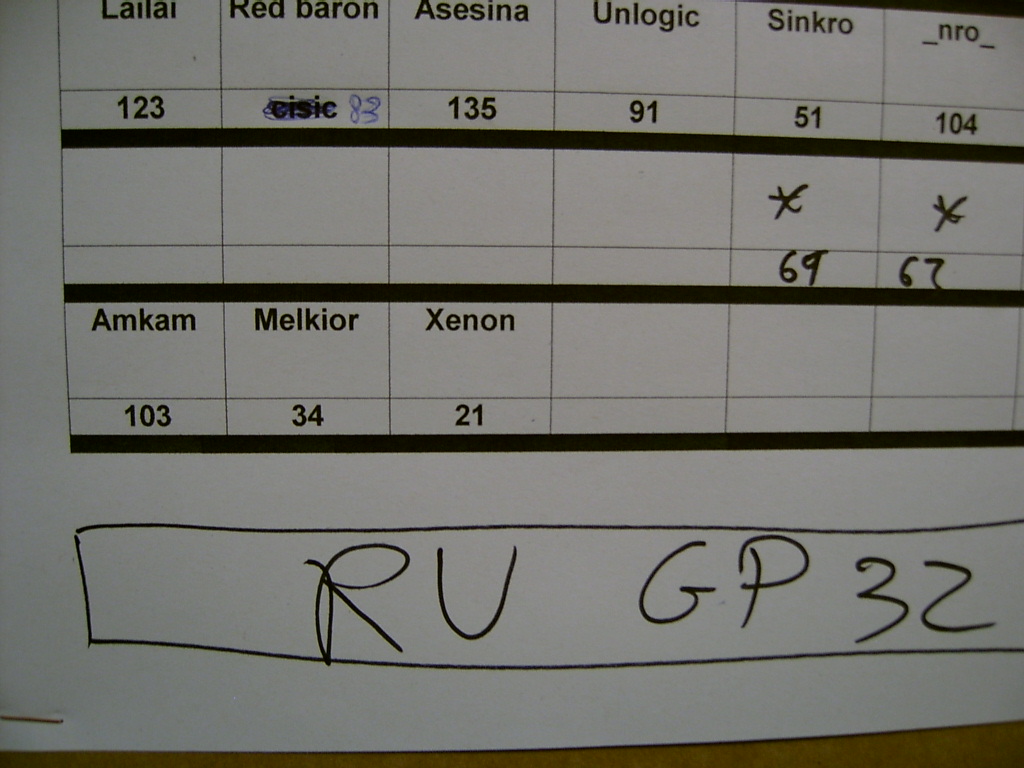 Lailai Red baron Asesina Unlogic Sinkro _nro_
123 cisic 83 135 91 51 104
* *
69 62
Amkam Melkior Xenon
103 34 21
RU GP32